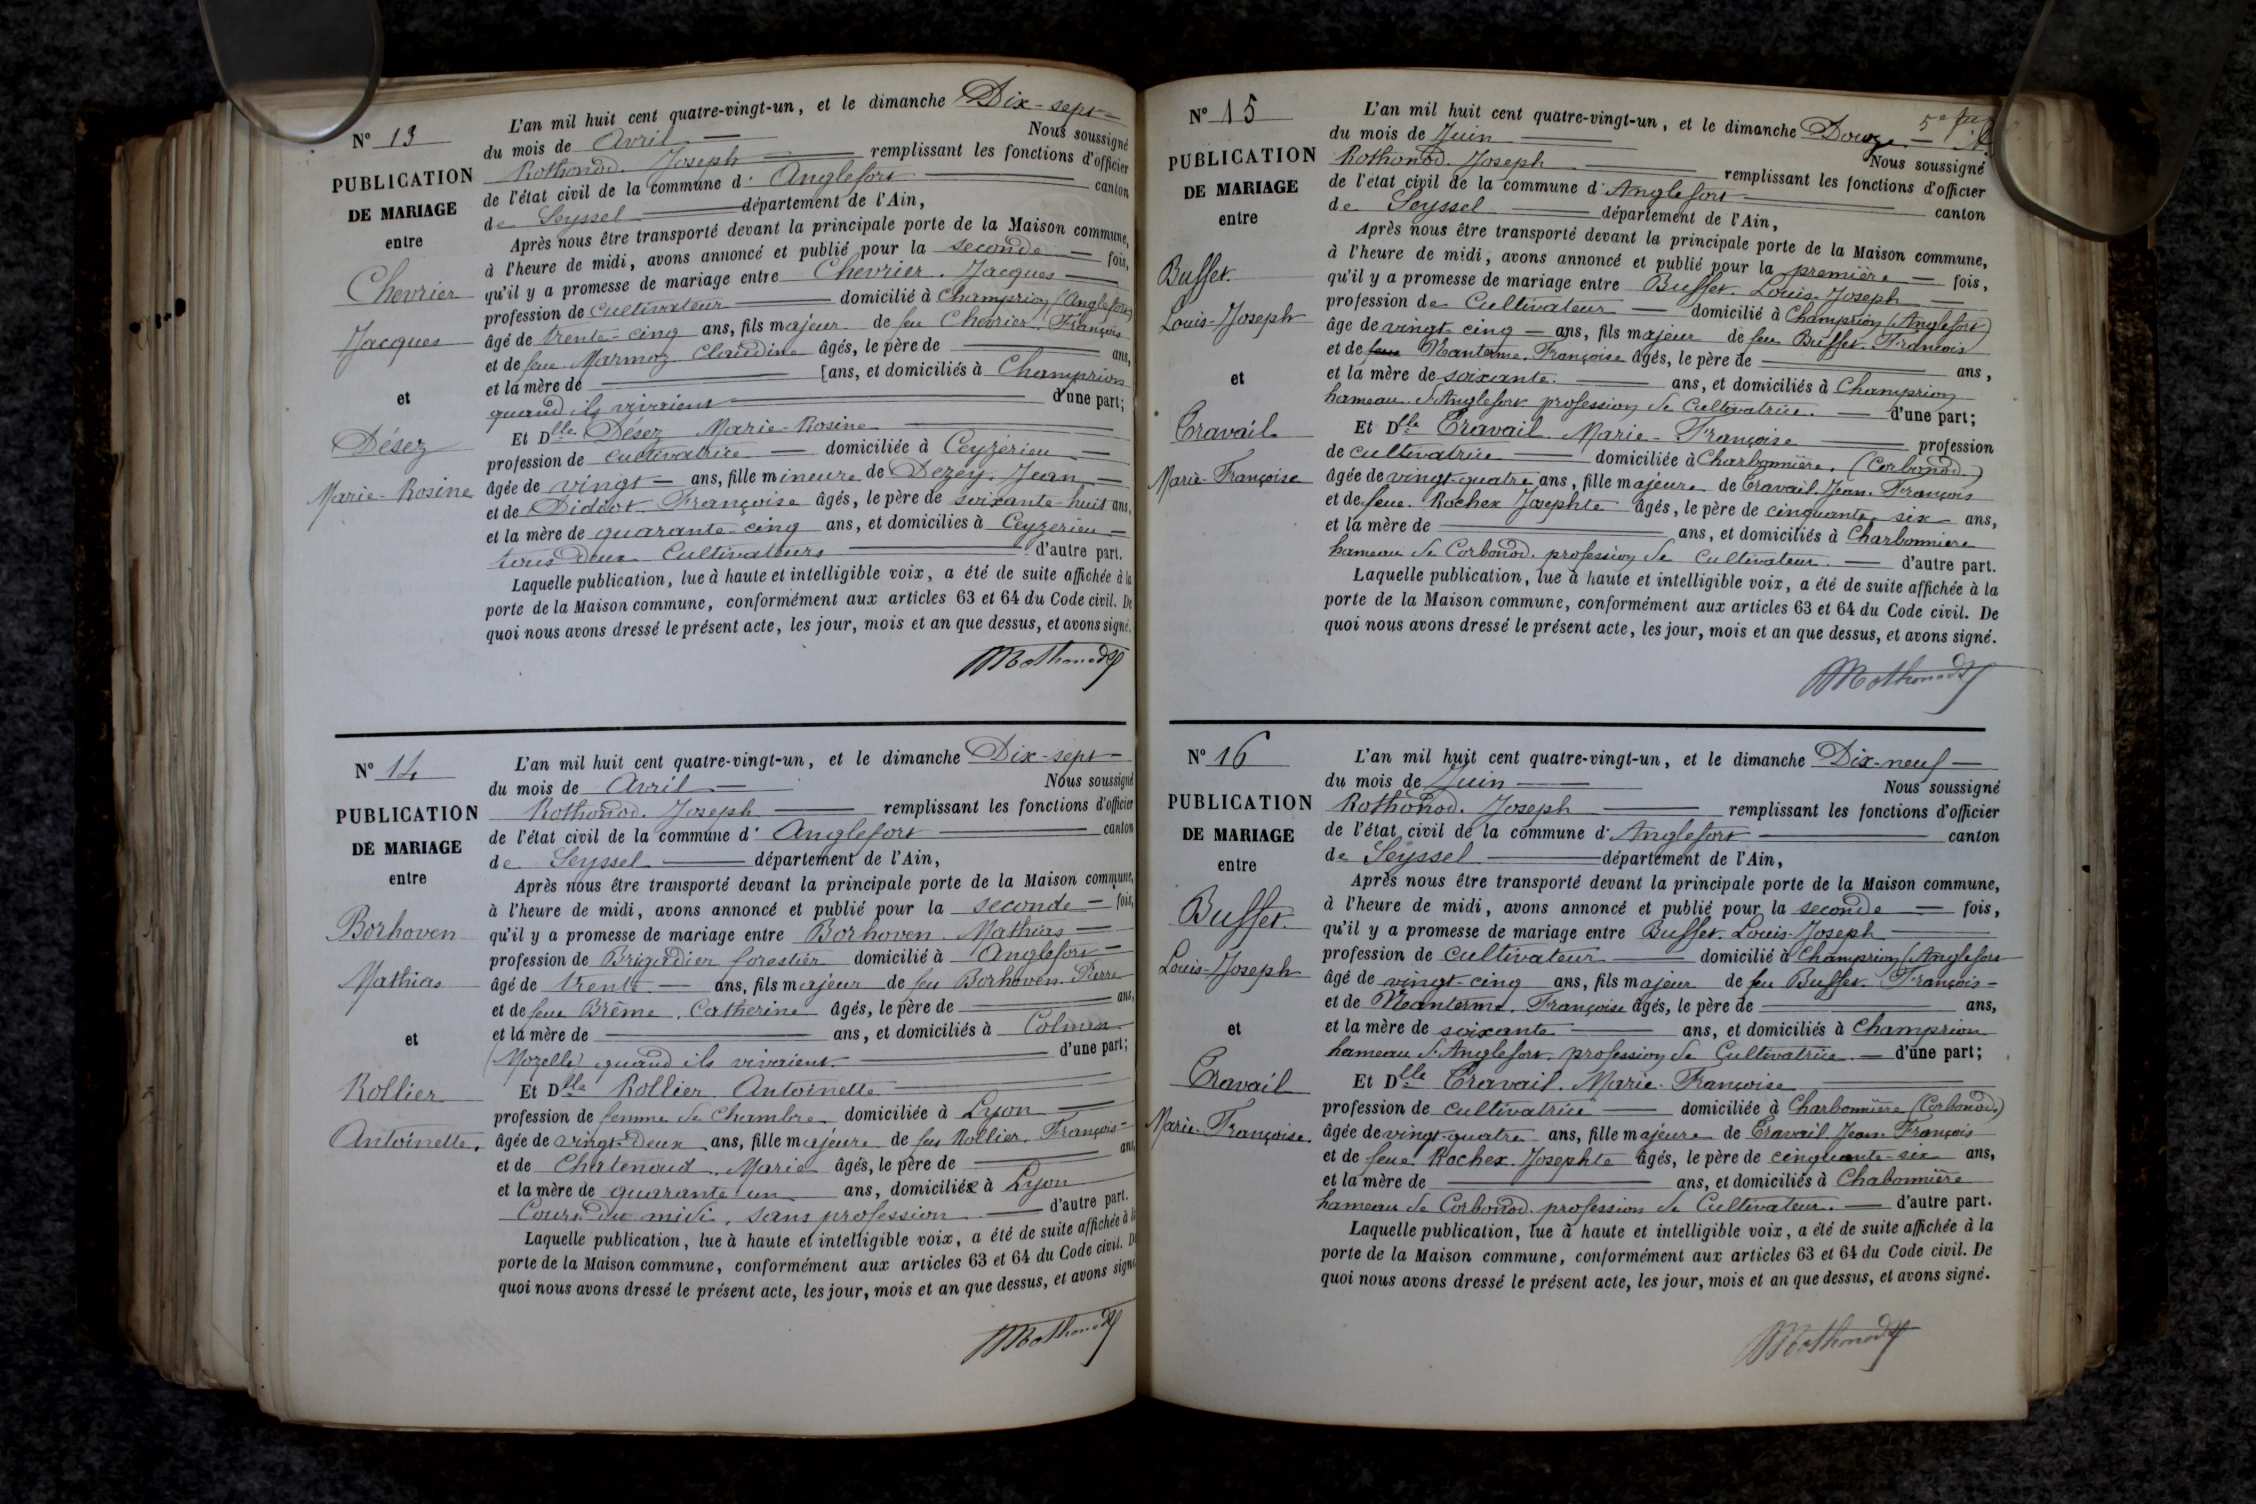 N° 13
PUBLICATION
DE MARIAGE
entre
Chevrier
Jacques
et
Désez
Marie-Rosine
L'an mil huit cent quatre-vingt-un, et le dimanche Dix-sept
du mois de Avril Nous soussigné
Rothonod. Joseph remplissant les fonctions d'officier
de l'état civil de la commune d' Anglefort canton
de Seyssel département de l'Ain,
Après nous être transporté devant la principale porte de la Maison commune,
à l'heure de midi, avons annoncé et publié pour la seconde fois,
qu'il y a promesse de mariage entre Chevrier. Jacques
profession de cultivateur domicilié à Champrion (Anglefort)
âgé de trente-cinq ans, fils majeur de feu Chevrier François
et de feue Marmoz Claudine âgés, le père de ans,
et la mère de [ans, et domiciliés à Champrion
quand ils vivaient d'une part;
Et Dlle Désez Marie-Rosine
profession de cultivatrice domiciliée à Ceyzérieu
âgée de vingt ans, fille mineure de Dezey. Jean
et de Didiot. Françoise âgés, le père de soixante-huit ans,
et la mère de quarante-cinq ans, et domiciliés à Ceyzerieu
tous deux Cultivateurs d'autre part.
Laquelle publication, lue à haute et intelligible voix, a été de suite affichée à la
porte de la Maison commune, conformément aux articles 63 et 64 du Code civil. De
quoi nous avons dressé le présent acte, les jour, mois et an que dessus, et avons signé.
N° 14
PUBLICATION
DE MARIAGE
entre
Borhoven
Mathias
et
Rollier
Antoinette.
L'an mil huit cent quatre-vingt-un, et le dimanche Dix-sept
du mois de Avril Nous soussigné
Rothonod. Joseph remplissant les fonctions d'officier
de l'état civil de la commune d' Anglefort canton
de Seyssel département de l'Ain,
Après nous être transporté devant la principale porte de la Maison commune,
à l'heure de midi, avons annoncé et publié pour la seconde fois,
qu'il y a promesse de mariage entre Borhoven. Mathias
profession de Brigadier forestier domicilié à Anglefort
âgé de trente ans, fils majeur de feu Borhoven. Pierre
et de feue Brême. Catherine âgés, le père de ans,
et la mère de ans, et domiciliés à Colmen
(Mozelle) quand ils vivaient. d'une part;
Et Dlle Rollier Antoinette
profession de femme de chambre domiciliée à Lyon
âgée de vingt-deux ans, fille majeure de feu Rollier. François
et de Chatenoud. Marie âgés, le père de ans,
et la mère de quarante un ans, domiciliée à Lyon
Cours du midi, sans profession d'autre part.
Laquelle publication, lue à haute et intelligible voix, a été de suite affichée à la
porte de la Maison commune, conformément aux articles 63 et 64 du Code civil. De
quoi nous avons dressé le présent acte, les jour, mois et an que dessus, et avons signé
N° 15
PUBLICATION
DE MARIAGE
entre
Buffet.
Louis-Joseph
et
Travail
Marie-Françoise
L'an mil huit cent quatre-vingt-un, et le dimanche Douze
du mois de Juin Nous soussigné
Rothonod. Joseph remplissant les fonctions d'officier
de l'état civil de la commune d' Anglefort canton
de Seyssel département de l'Ain,
Après nous être transporté devant la principale porte de la Maison commune,
à l'heure de midi, avons annoncé et publié pour la première fois,
qu'il y a promesse de mariage entre Buffet. Louis-Joseph
profession de Cultivateur domicilié à Champrion (Anglefort)
âgé de vingt-cinq ans, fils majeur de feu Buffet. François
et de feue Nanterme. Françoise âgés, le père de ans,
et la mère de soixante. ans, et domiciliés à Champrion
hameau d'Anglefort profession de Cultivatrice. d'une part;
Et Dlle Travail. Marie-Françoise profession
de cultivatrice domiciliée à Charbonnière. (Corbonod.)
âgée de vingt-quatre ans, fille majeure de Travail. Jean-François
et de feue. Rochex Josephte âgés, le père de cinquante-six ans,
et la mère de ans, et domiciliés à Charbonniere
hameau de Corbonod. profession de Cultivateur. d'autre part.
Laquelle publication, lue à haute et intelligible voix, a été de suite affichée à la
porte de la Maison commune, conformément aux articles 63 et 64 du Code civil. De
quoi nous avons dressé le présent acte, les jour, mois et an que dessus, et avons signé.
N° 16
PUBLICATION
DE MARIAGE
entre
Buffet.
Louis-Joseph
et
Travail
Marie-Françoise.
L'an mil huit cent quatre-vingt-un, et le dimanche Dix-neuf
du mois de Juin Nous soussigné
Rothonod. Joseph remplissant les fonctions d'officier
de l'état civil de la commune d' Anglefort canton
de Seyssel département de l'Ain,
Après nous être transporté devant la principale porte de la Maison commune,
à l'heure de midi, avons annoncé et publié pour la seconde fois,
qu'il y a promesse de mariage entre Buffet. Louis-Joseph
profession de cultivateur domicilié à Champrion (Anglefort
âgé de vingt-cinq ans, fils majeur de feu Buffet. François
et de Nanterme. Françoise âgés, le père de ans,
et la mère de soixante ans, et domiciliés à Champrion
hameau d'Anglefort. profession de Cultivatrice. d'une part;
Et Dlle Travail. Marie-Françoise
profession de cultivatrice domiciliée à Charbonnière (Corbonod.)
âgée de vingt-quatre ans, fille majeure de Travail Jean-François
et de feue Rochex. Josephte âgés, le père de cinquante-six ans,
et la mère de ans, et domiciliés à Chabonnière
hameau de Corbonod. profession de Cultivateur. d'autre part.
Laquelle publication, lue à haute et intelligible voix, a été de suite affichée à la
porte de la Maison commune, conformément aux articles 63 et 64 du Code civil. De
quoi nous avons dressé le présent acte, les jour, mois et an que dessus, et avons signé.